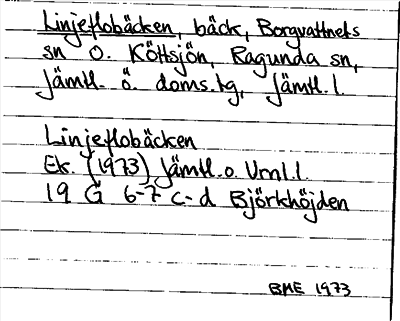 Linjeflobäcken, bäck, Borgvattnets
sn o. Köttsjön, Ragunda sn,
Jämtl. ö. doms.tg, Jämtl. l.
Linjeflobäcken
Ek. (1973) Jämtl. o. Vrnl. l.
19 G 6-7 c-d Björkhöjden
BME 1973